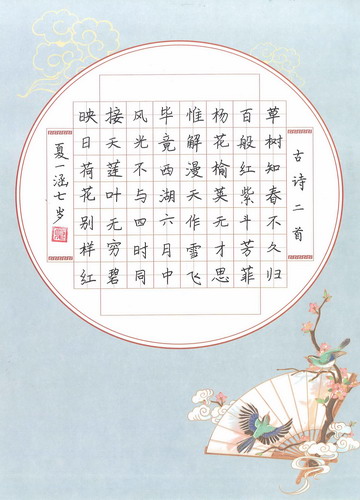 古诗二首
草树知春不久归
百般红紫斗芳菲
杨花榆荚无才思
惟解漫天作雪飞
毕竟西湖六月中
风光不与四时同
接天莲叶无穷碧
映日荷花别样红
夏一涵七岁